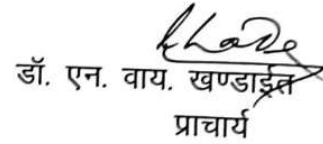 डॉ. एन. वाय. खण्डाईत
प्राचार्य